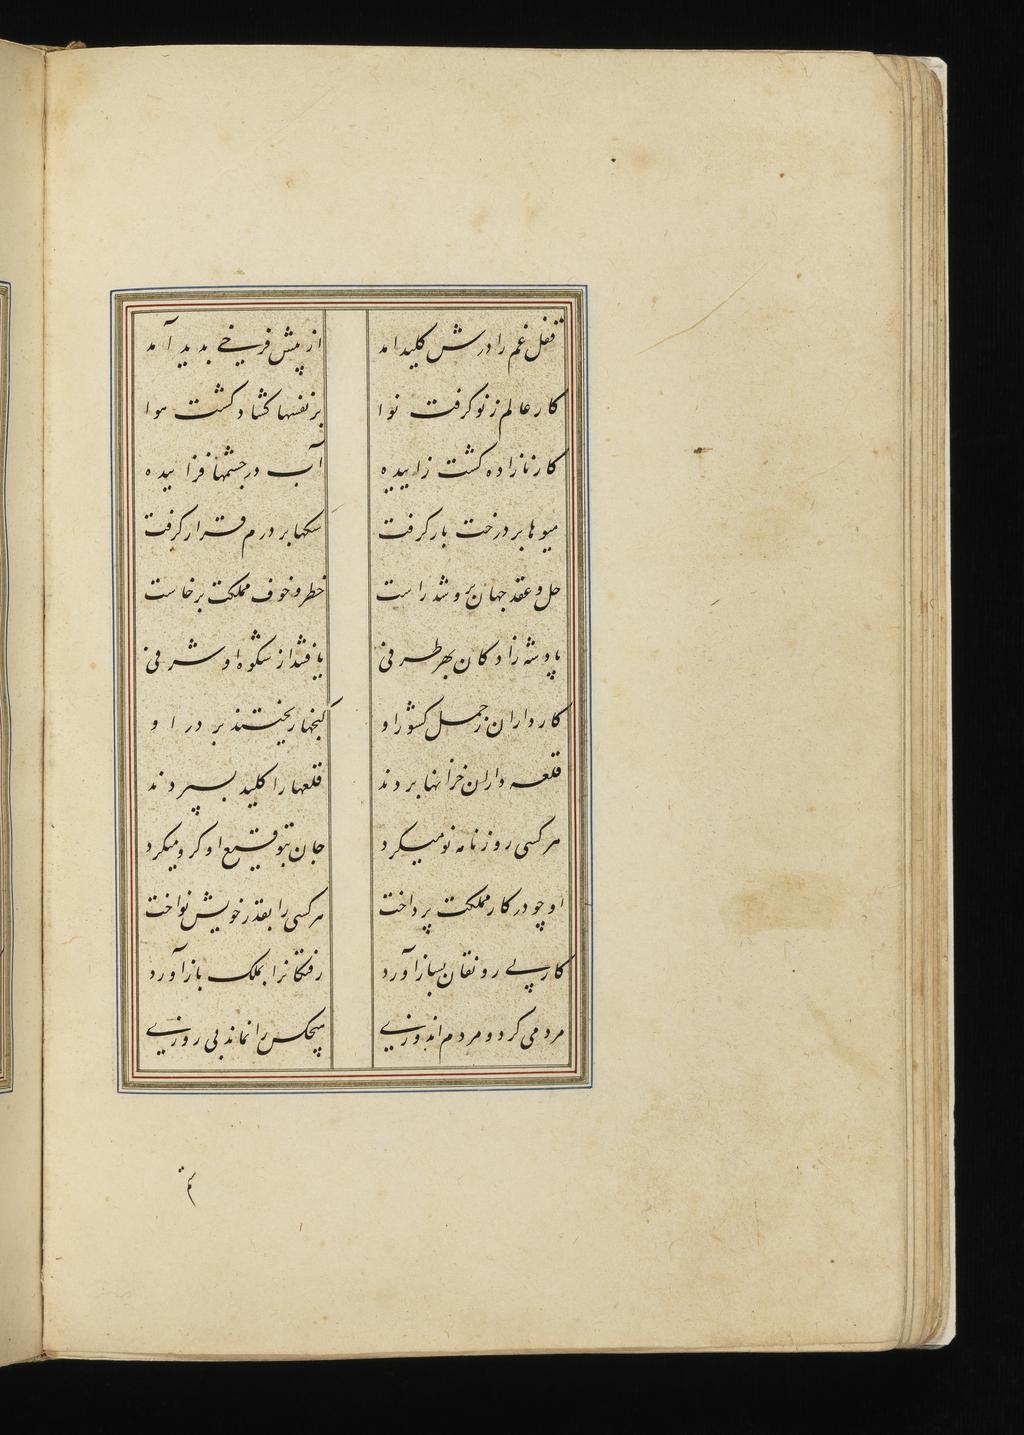 قفل غم را درش کلید آمد از پیش فرخی بدید آمد
کار عالم ز نو گرفت نوا بر نفسها کشاد گشت هوا
کاو نازاده گشت زاییده آب در چشمها فزاییده
میوها بر درخت بار گرفت سکها بر درم قرار گرفت
حل و عقد جهان برو شد راست خطر و خوف مملکت برخاست
پادشه زادگان بهر طرفی یافتند از شکوه او شرفی
کارداران ز حمل کشور او گنجها ریختند بر در او
قلعه داران خزانها بردند قلعها را کلید بسپردند
هر کسی روزنامه نو میکرد جان بتوقیع او گرو میکرد
او چو در کار مملکت پرداخت هر کسی را بقدر خویش نواخت
کار بی رونقان بساز آورد رفتگانرا بملک باز آورد
مردمی کرد و مردم اندوزی هیچکس را نماند بی روزی